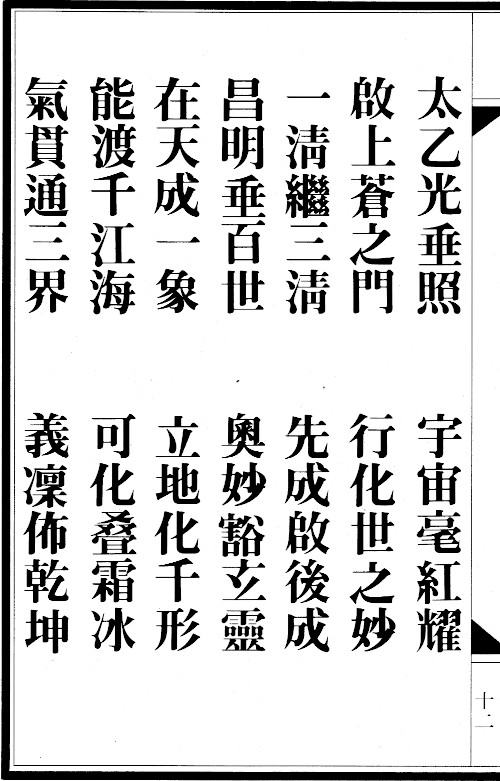 太乙光垂照　宇宙毫紅耀
啟上蒼之門　行化世之妙
一淸繼三淸　先成啟後成
昌明垂百世　奧妙豁玄靈
在天成一象　立地化千形
能渡千江海　可化叠霜冰
氣貫通三界　義凜佈乾坤
十二